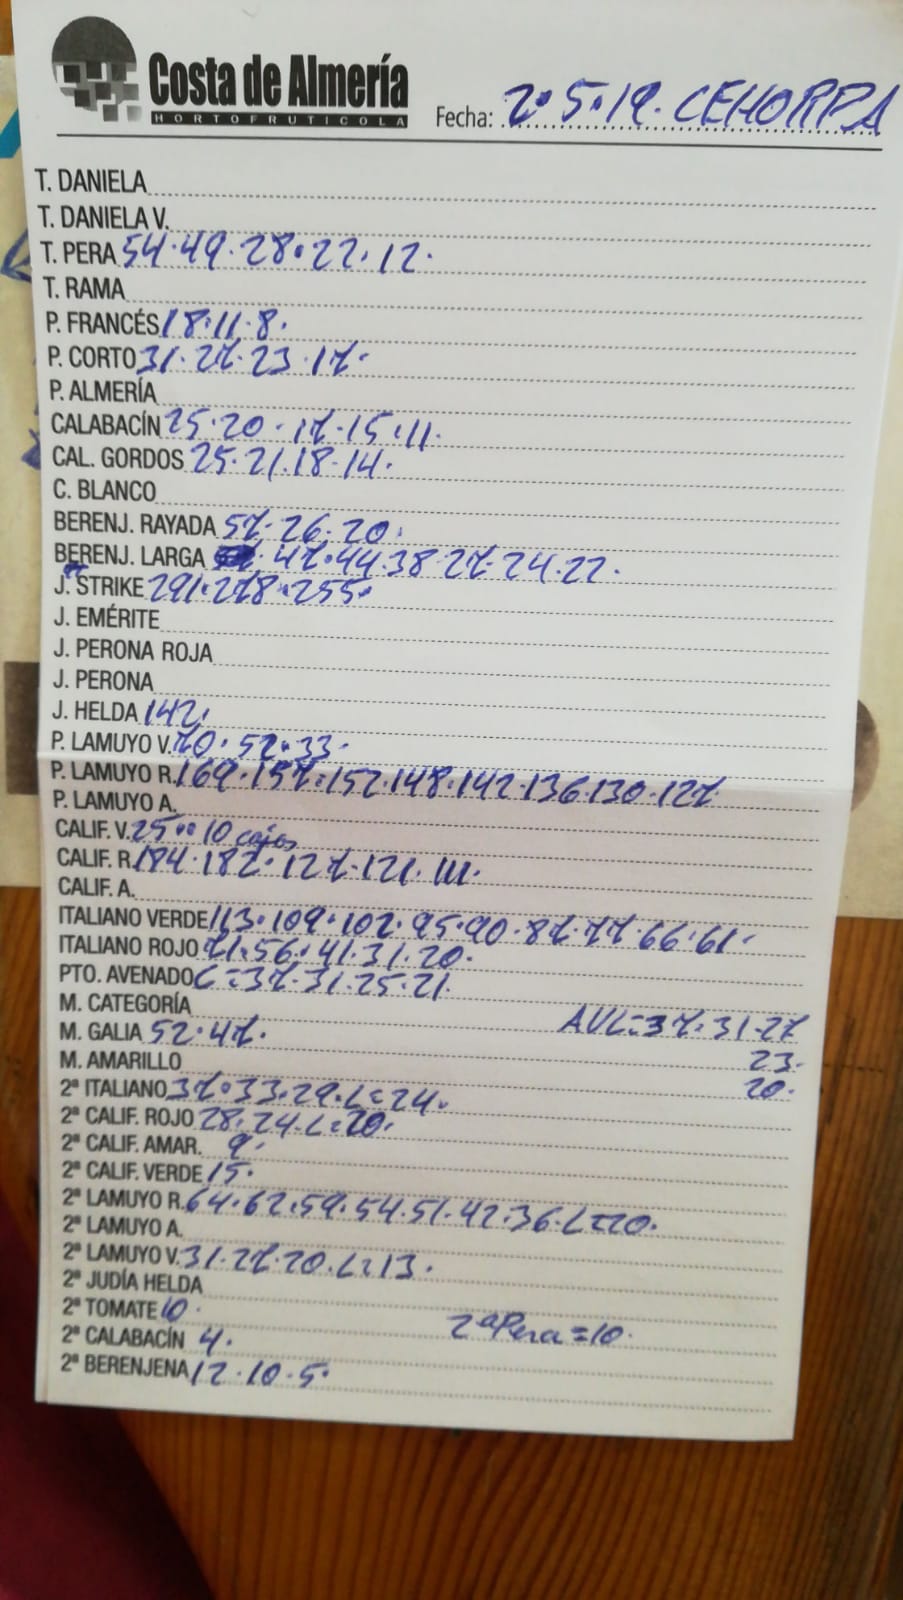 Costa de Almería
HORTOFRUTICOLA
Fecha: 2·5·19. CEHORPA
T. DANIELA
T. DANIELA V.
T. PERA 54·49·28·22·12·
T. RAMA
P. FRANCÉS 18·11·8·
P. CORTO 31·27·23·17·
P. ALMERÍA
CALABACÍN 25·20·17·15·11·
CAL. GORDOS 25·21·18·14·
C. BLANCO
BERENJ. RAYADA 57·26·20·
BERENJ. LARGA 47·44·38·27·24·22·
J. STRIKE 291·278·255·
J. EMÉRITE
J. PERONA ROJA
J. PERONA
J. HELDA 142·
P. LAMUYO V. 70·52·33·
P. LAMUYO R. 169·157·152·148·142·136·130·127
P. LAMUYO A.
CALIF. V. 25··10 cajas
CALIF. R. 184·182·127·121·111·
CALIF. A.
ITALIANO VERDE 113·109·102·95·90·87·77·66·61·
ITALIANO ROJO 71·56·41·31·20·
PTO. AVENADO C=37·31·25·21·
M. CATEGORÍA
AVL=37·31·27
M. GALIA 52·47·
23·
M. AMARILLO
20·
2ª ITALIANO 37·33·29·L=24·
2ª CALIF. ROJO 28·24·L=20·
2ª CALIF. AMAR. 9·
2ª CALIF. VERDE 15·
2ª LAMUYO R. 64·62·59·54·51·42·36·L=20·
2ª LAMUYO A.
2ª LAMUYO V. 31·27·20·L=13·
2ª JUDÍA HELDA
2ª TOMATE 10·
2ª Pera=10·
2ª CALABACÍN 4·
2ª BERENJENA 12·10·5·